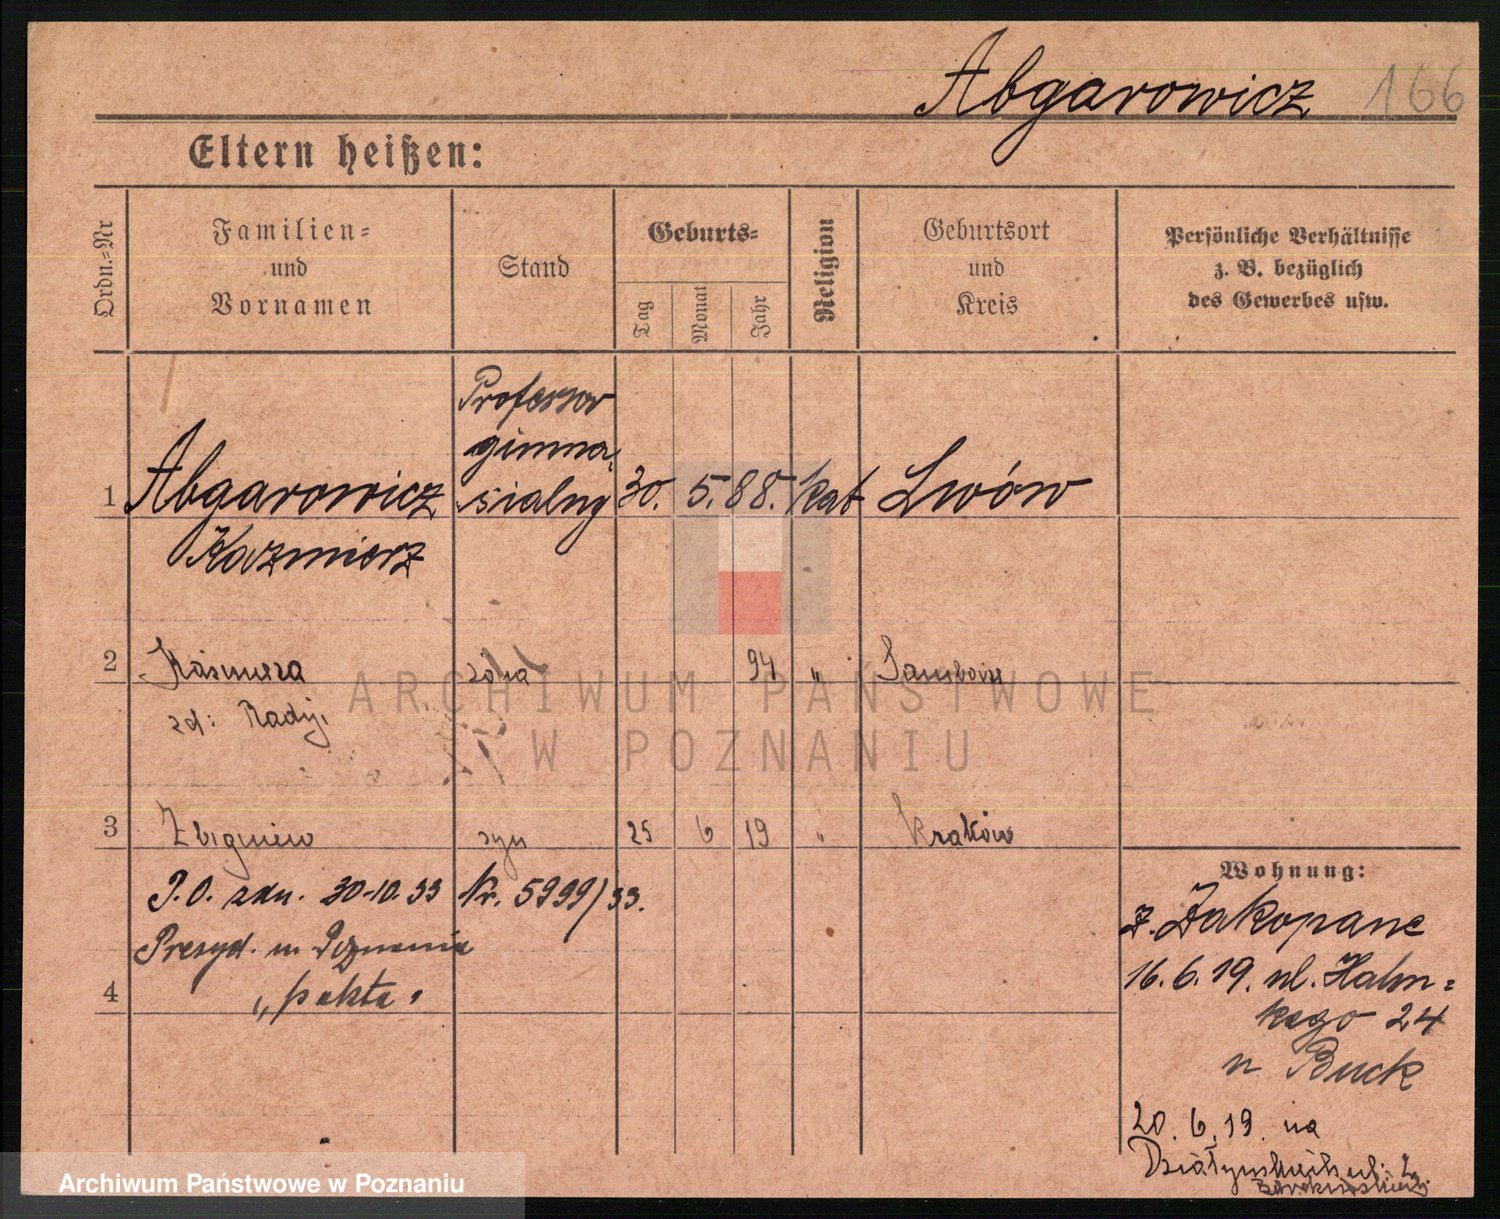 Abgarowicz 166
Eltern heißen:
Ordn.=Nr
Familien=
und
Vornamen
Stand
Geburts=
Tag
Monat
Jahr
Religion
Geburtsort
und
Kreis
Persönliche Verhältnisse
z. B. bezüglich
des Gewerbes usw.
1 Abgarowicz Professor gimna, sialny 30. 5. 88. kat Lwów
Kazmierz
2 Kasimera żona 94 " Sambora
zd: Radij.
3 Zbigniew syn 25 6 19 " Kraków
P.O. zdn. 30-10.33 Nr. 5999/33.
Prezyd. m. Poznania
4 „pakta"
Wohnung:
z. Zakopane
16.6.19. ul. Halm=
kego 24
n Buck
20. 6. 19. na
ARCHIWUM PAŃSTWOWE
W POZNANIU
Archiwum Państwowe w Poznaniu